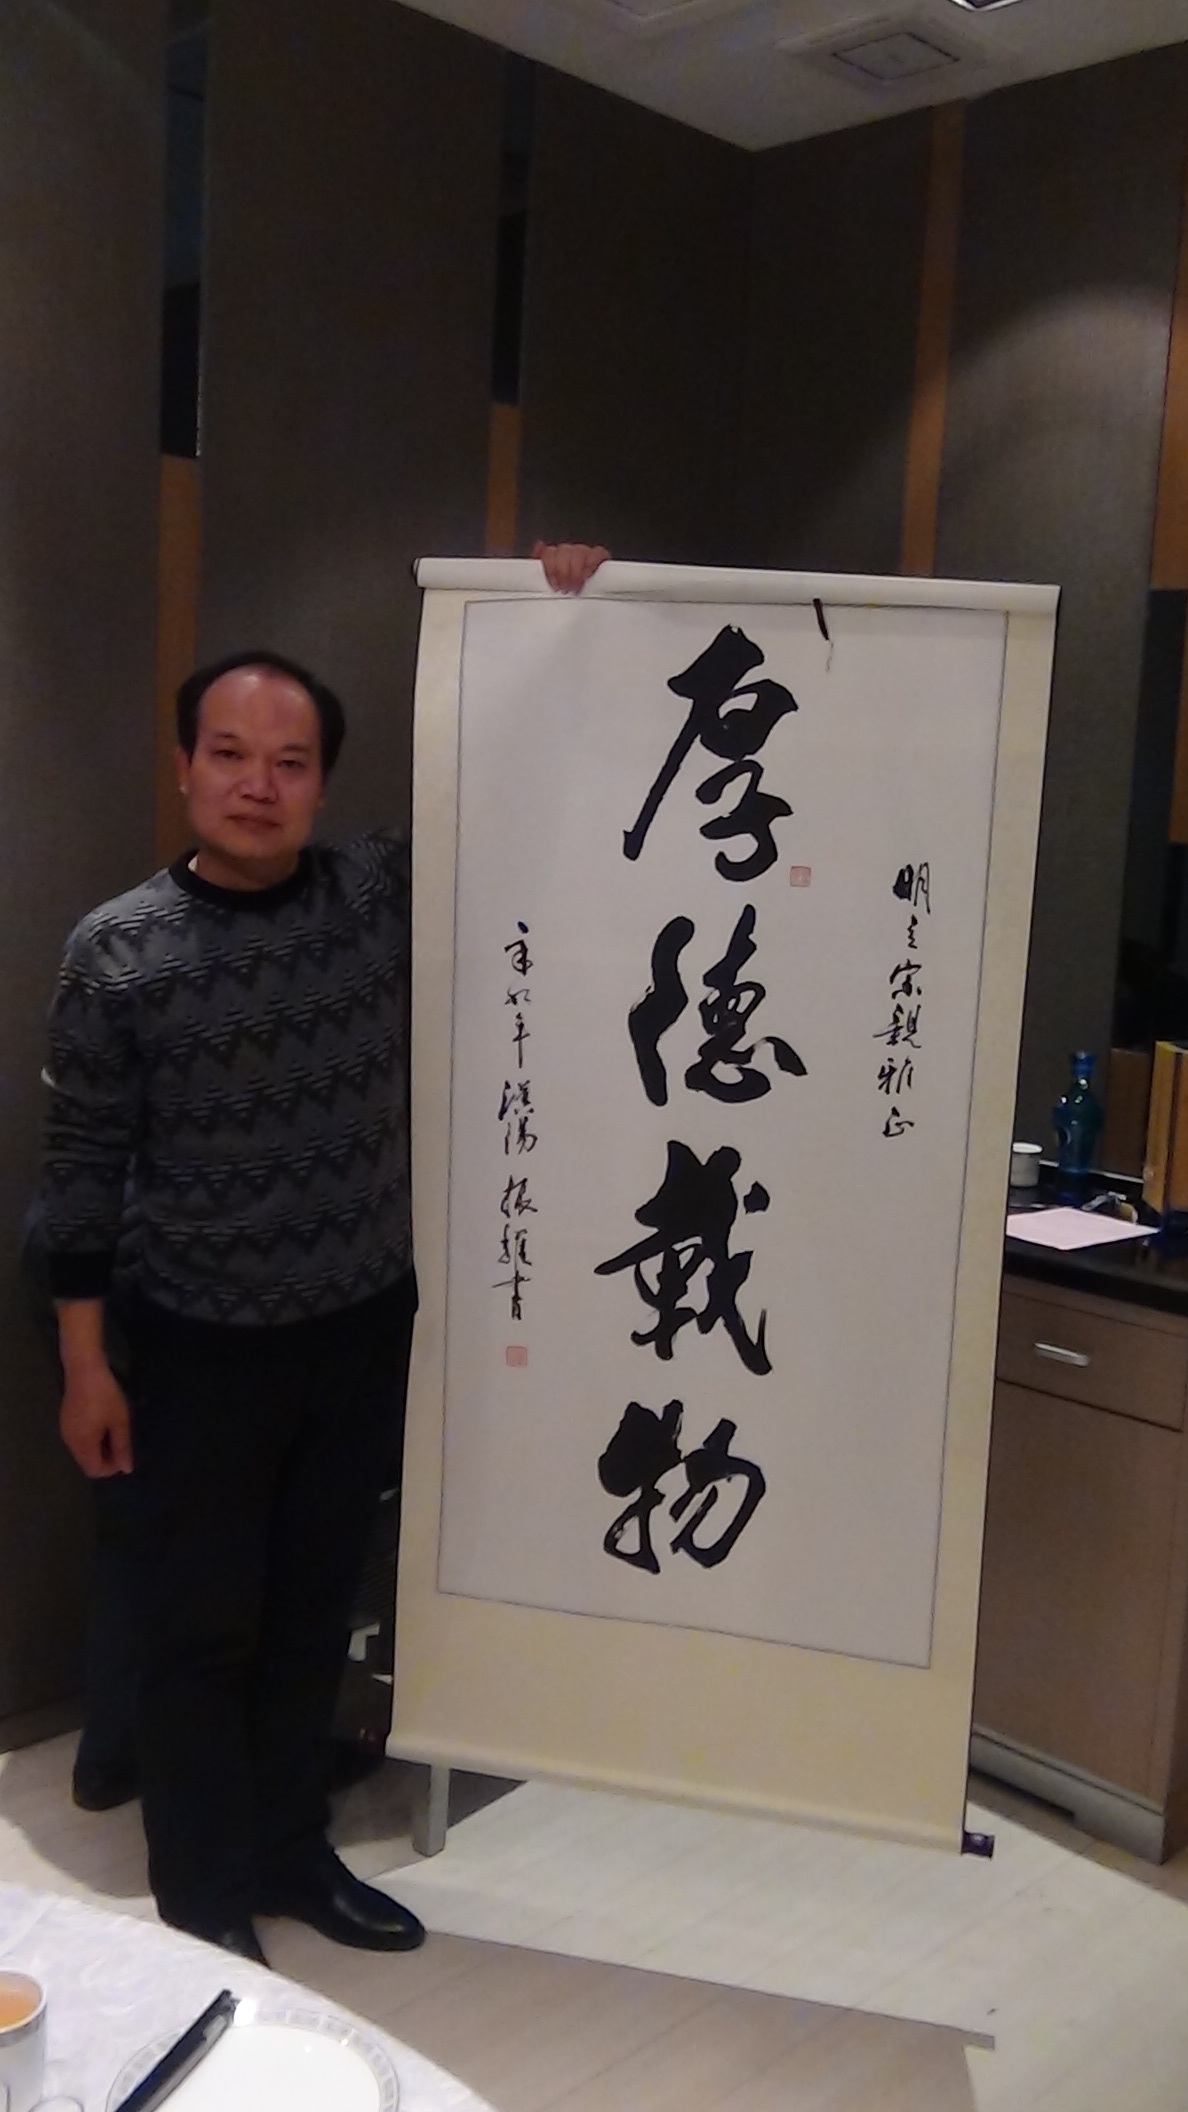 明 宗親雅正
厚德載物
辛卯年 陽 振 書